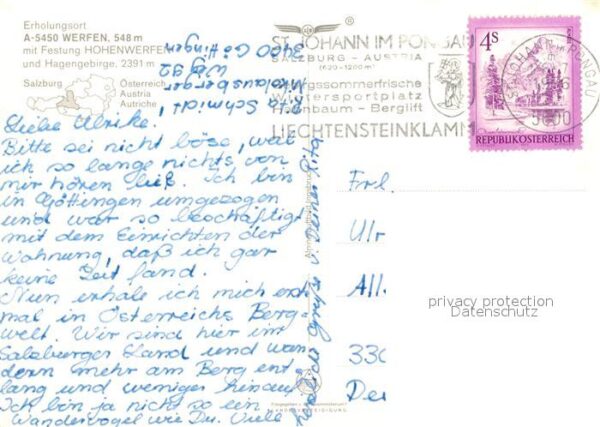 Erholungsort
A-5450 WERFEN, 548 m
mit Festung HOHENWERFEN
und Hagengebirge, 2391 m
Salzburg
Österreich
Austria
Autriche
Rita Schmidt,
Nikolausberger
Weg 92
3400 Göttingen
ST. JOHANN IM PONGAU
SALZBURG - AUSTRIA
(620-1200m)
Sommerfrische
Wintersportplatz
Hahnbaum - Berglift
LIECHTENSTEINKLAMM
4S
REPUBLIK ÖSTERREICH
ST. JOHANN PONGAU
5600
Liebe Ulrike,
Bitte sei nicht böse, weil
ich so lange nichts von
mir hören ließ. Ich bin
in Göttingen umgezogen
und war so beschäftigt
mit dem Einrichten der
Wohnung, daß ich gar
keine Zeit fand.
Nun erhole ich mich erst
mal in Österreichs Berg-
welt. Wir sind hier im
Salzburger Land und wan
dern mehr am Berg ent
lang und weniger hinauf.
Ich bin ja nicht so ein
Wandervogel wie Du. Viele
herzliche Grüße v. Deiner Rita
Frl.
Ulr
All
330
Der
privacy protection
Datenschutz